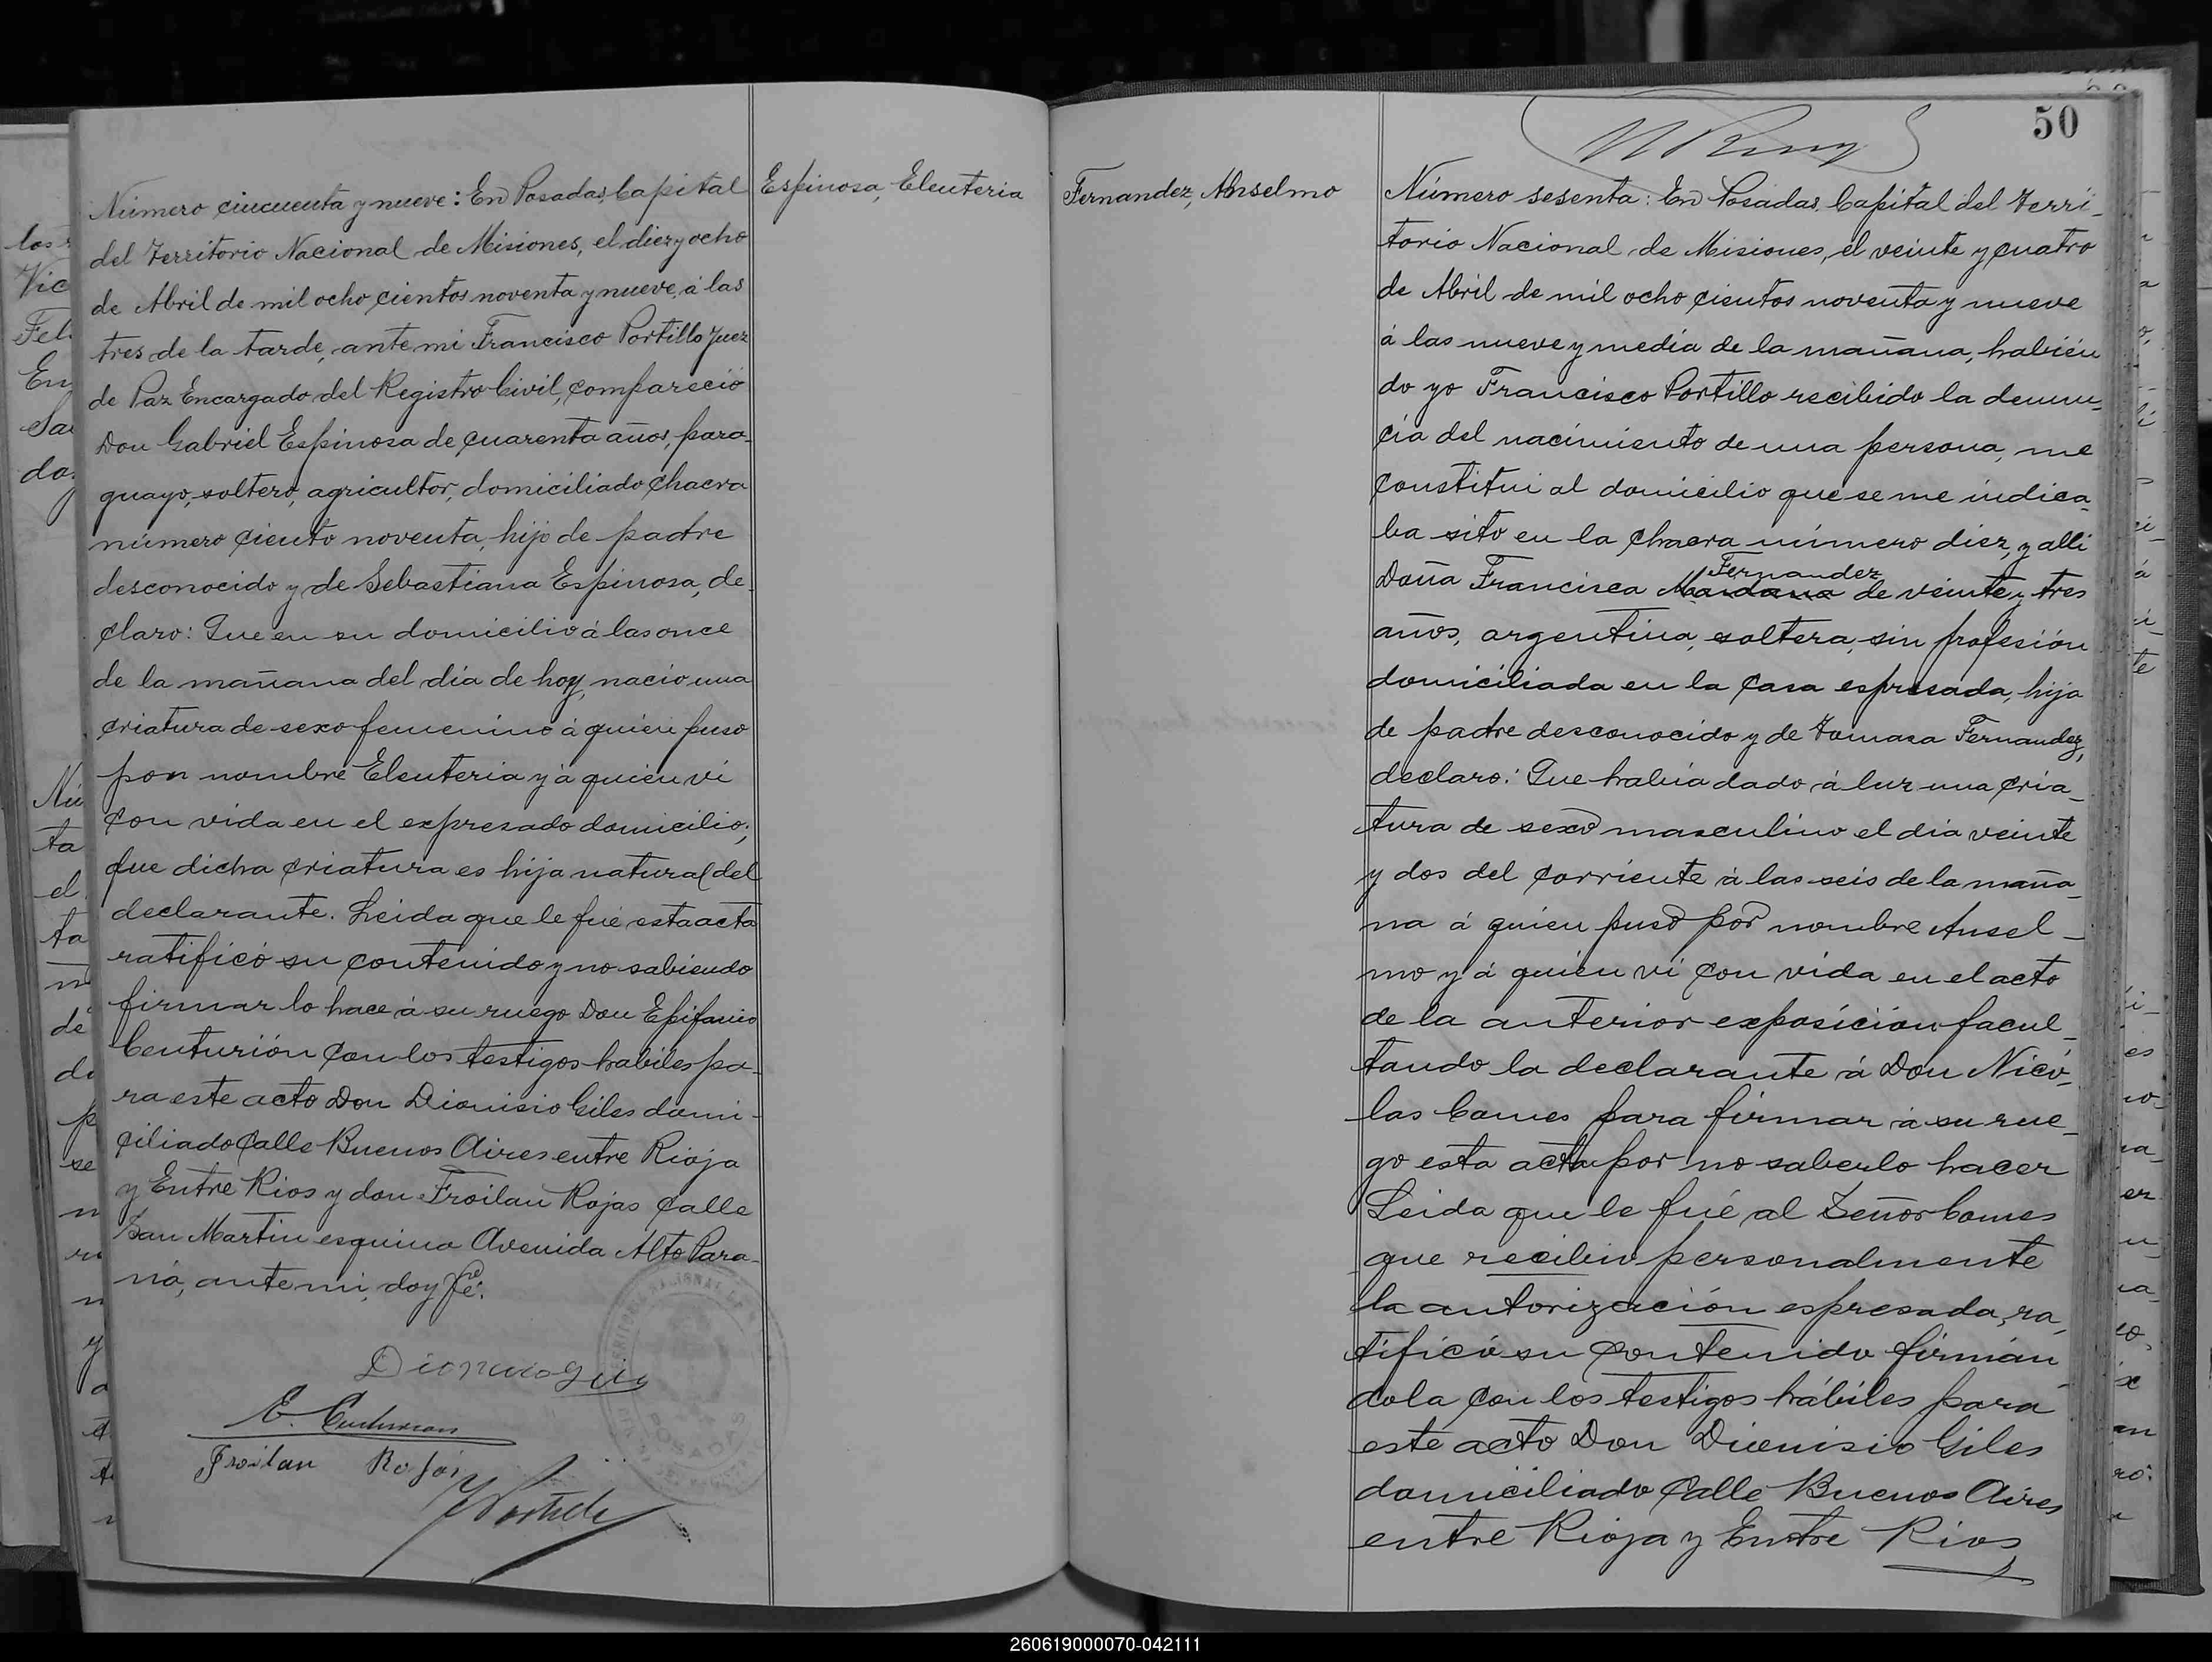 Espinosa, Eleuteria
Número cincuenta y nueve: En Posadas, Capital
del Territorio Nacional de Misiones, el diez y ocho
de Abril de mil ocho cientos noventa y nueve, á las
tres de la tarde, ante mi Francisco Portillo Juez
de Paz Encargado del Registro Civil, compareció
Don Gabriel Espinosa de cuarenta años, para-
guayo, soltero, agricultor, domiciliado chacra
número ciento noventa, hijo de padre
desconocido y de Sebastiana Espinosa, de-
claro: Que en su domicilio á las once
de la mañana del dia de hoy, nacio una
criatura de sexo femenino á quien puso
por nombre Eleuteria y á quien vi
con vida en el expresado domicilio;
que dicha criatura es hija natural del
declarante. Leida que le fué esta acta
ratificó su contenido y no sabiendo
firmar lo hace á su ruego Don Epifanio
Centurión con los testigos habiles pa-
ra este acto Don Dionisio Giles domi-
ciliado Calle Buenos Aires entre Rioja
y Entre Rios y don Froilan Rojas Calle
San Martin esquina Avenida Alto Para-
ná, ante mi, doy fé.
Dionicio Gi
E. Centurion
Froilan Rojas
Portillo
POSADAS
50
Fernandez, Anselmo
Número sesenta: En Posadas, Capital del Terri-
torio Nacional de Misiones, el veinte y cuatro
de Abril de mil ocho cientos noventa y nueve
á las nueve y media de la mañana, habién
do yo Francisco Portillo recibido la denun-
cia del nacimiento de una persona, me
constitui al domicilio que se me indica-
ba sito en la chacra número diez, y alli
Fernandez
Doña Francisca Maidana de veinte y tres
años, argentina, soltera, sin profesión
domiciliada en la casa espresada, hija
de padre desconocido y de Tomasa Fernandez,
declaro: Que habia dado á luz una cria-
tura de sexo masculino el dia veinte
y dos del corriente á las seis de la maña-
na á quien puso por nombre Ansel-
mo y á quien vi con vida en el acto
de la anterior exposición facul-
tando la declarante á Don Nico-
las Comes para firmar á su rue-
go esta acta por no saberlo hacer
Leida que le fué al Señor Comes
que recibio personalmente
la autorización espresada, ra-
tificó su contenido firmán
dola con los testigos hábiles para
este acto Don Dionisio Giles
domiciliado Calle Buenos Aires
entre Rioja y Entre Rios
260619000070-042111